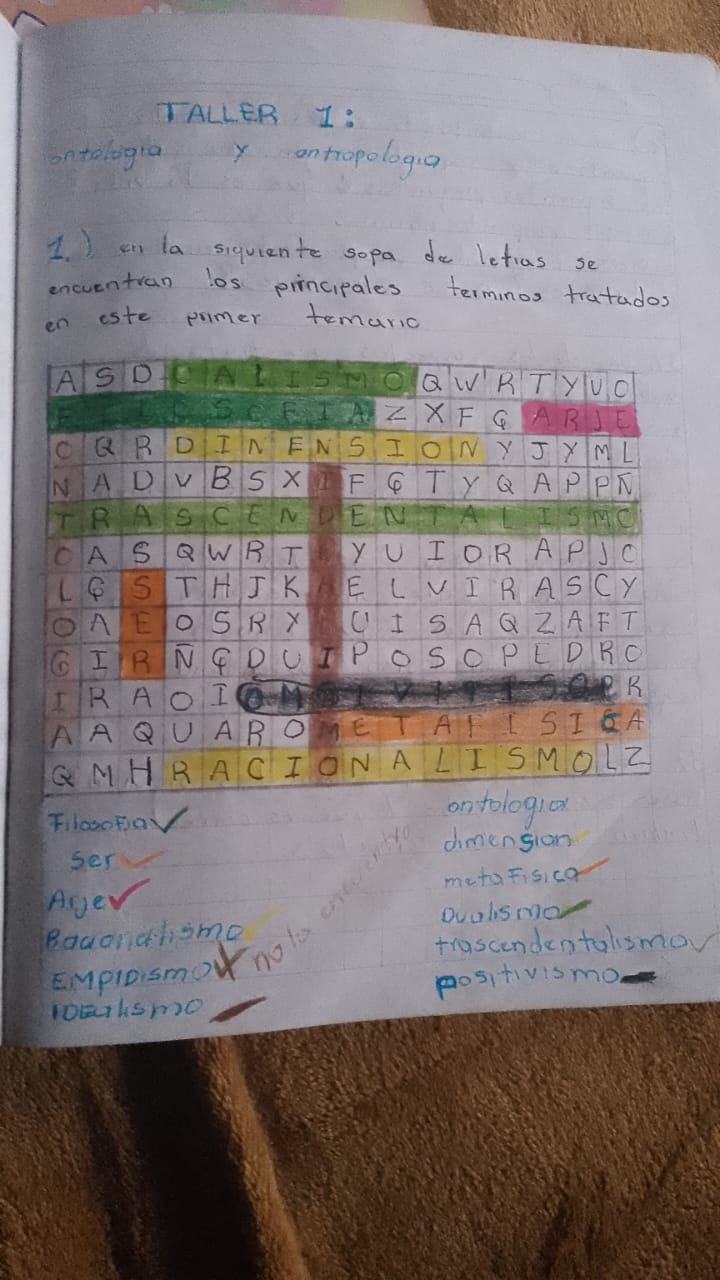 TALLER 1:
ontologia y antropologia
1.) en la siguiente sopa de letras se
encuentran los principales terminos tratados
en este primer temario
A S D C A L I S M O Q W R T Y U O
F I L O S O F I A Z X F G A R J E
O Q R D I N E N S I O N Y J Y M L
N A D V B S X I F G T Y Q A P P Ñ
T R A S C E N D E N T A L I S M O
O A S Q W R T E Y U I O R A P J C
L G S T H J K A E L V I R A S C Y
O A E O S R Y L U I S A Q Z A F T
G I R Ñ G D U I P O S O P E D R O
I R A O I O M S I V I T I S O P R
A A Q U A R O M E T A F I S I C A
Q M H R A C I O N A L I S M O L Z
Filosofia ✓ ontologia
Ser ✓ dimension
Arje ✓ metafisica
Racionalismo Dualismo
EMPIDISMO X no lo encuentro trascendentalismo
IDEalismo positivismo